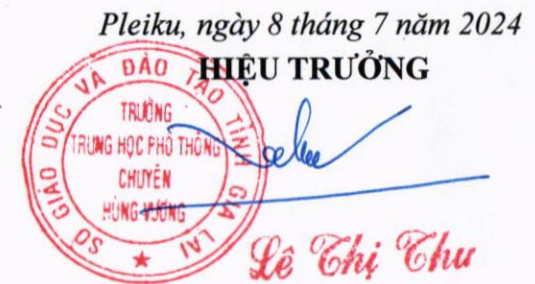 Pleiku, ngày 8 tháng 7 năm 2024
HIỆU TRƯỞNG
SỞ GIÁO DỤC VÀ ĐÀO TẠO TỈNH GIA LAI
TRƯỜNG
TRUNG HỌC PHỔ THÔNG
CHUYÊN
HÙNG VƯƠNG
Lê Thị Thu